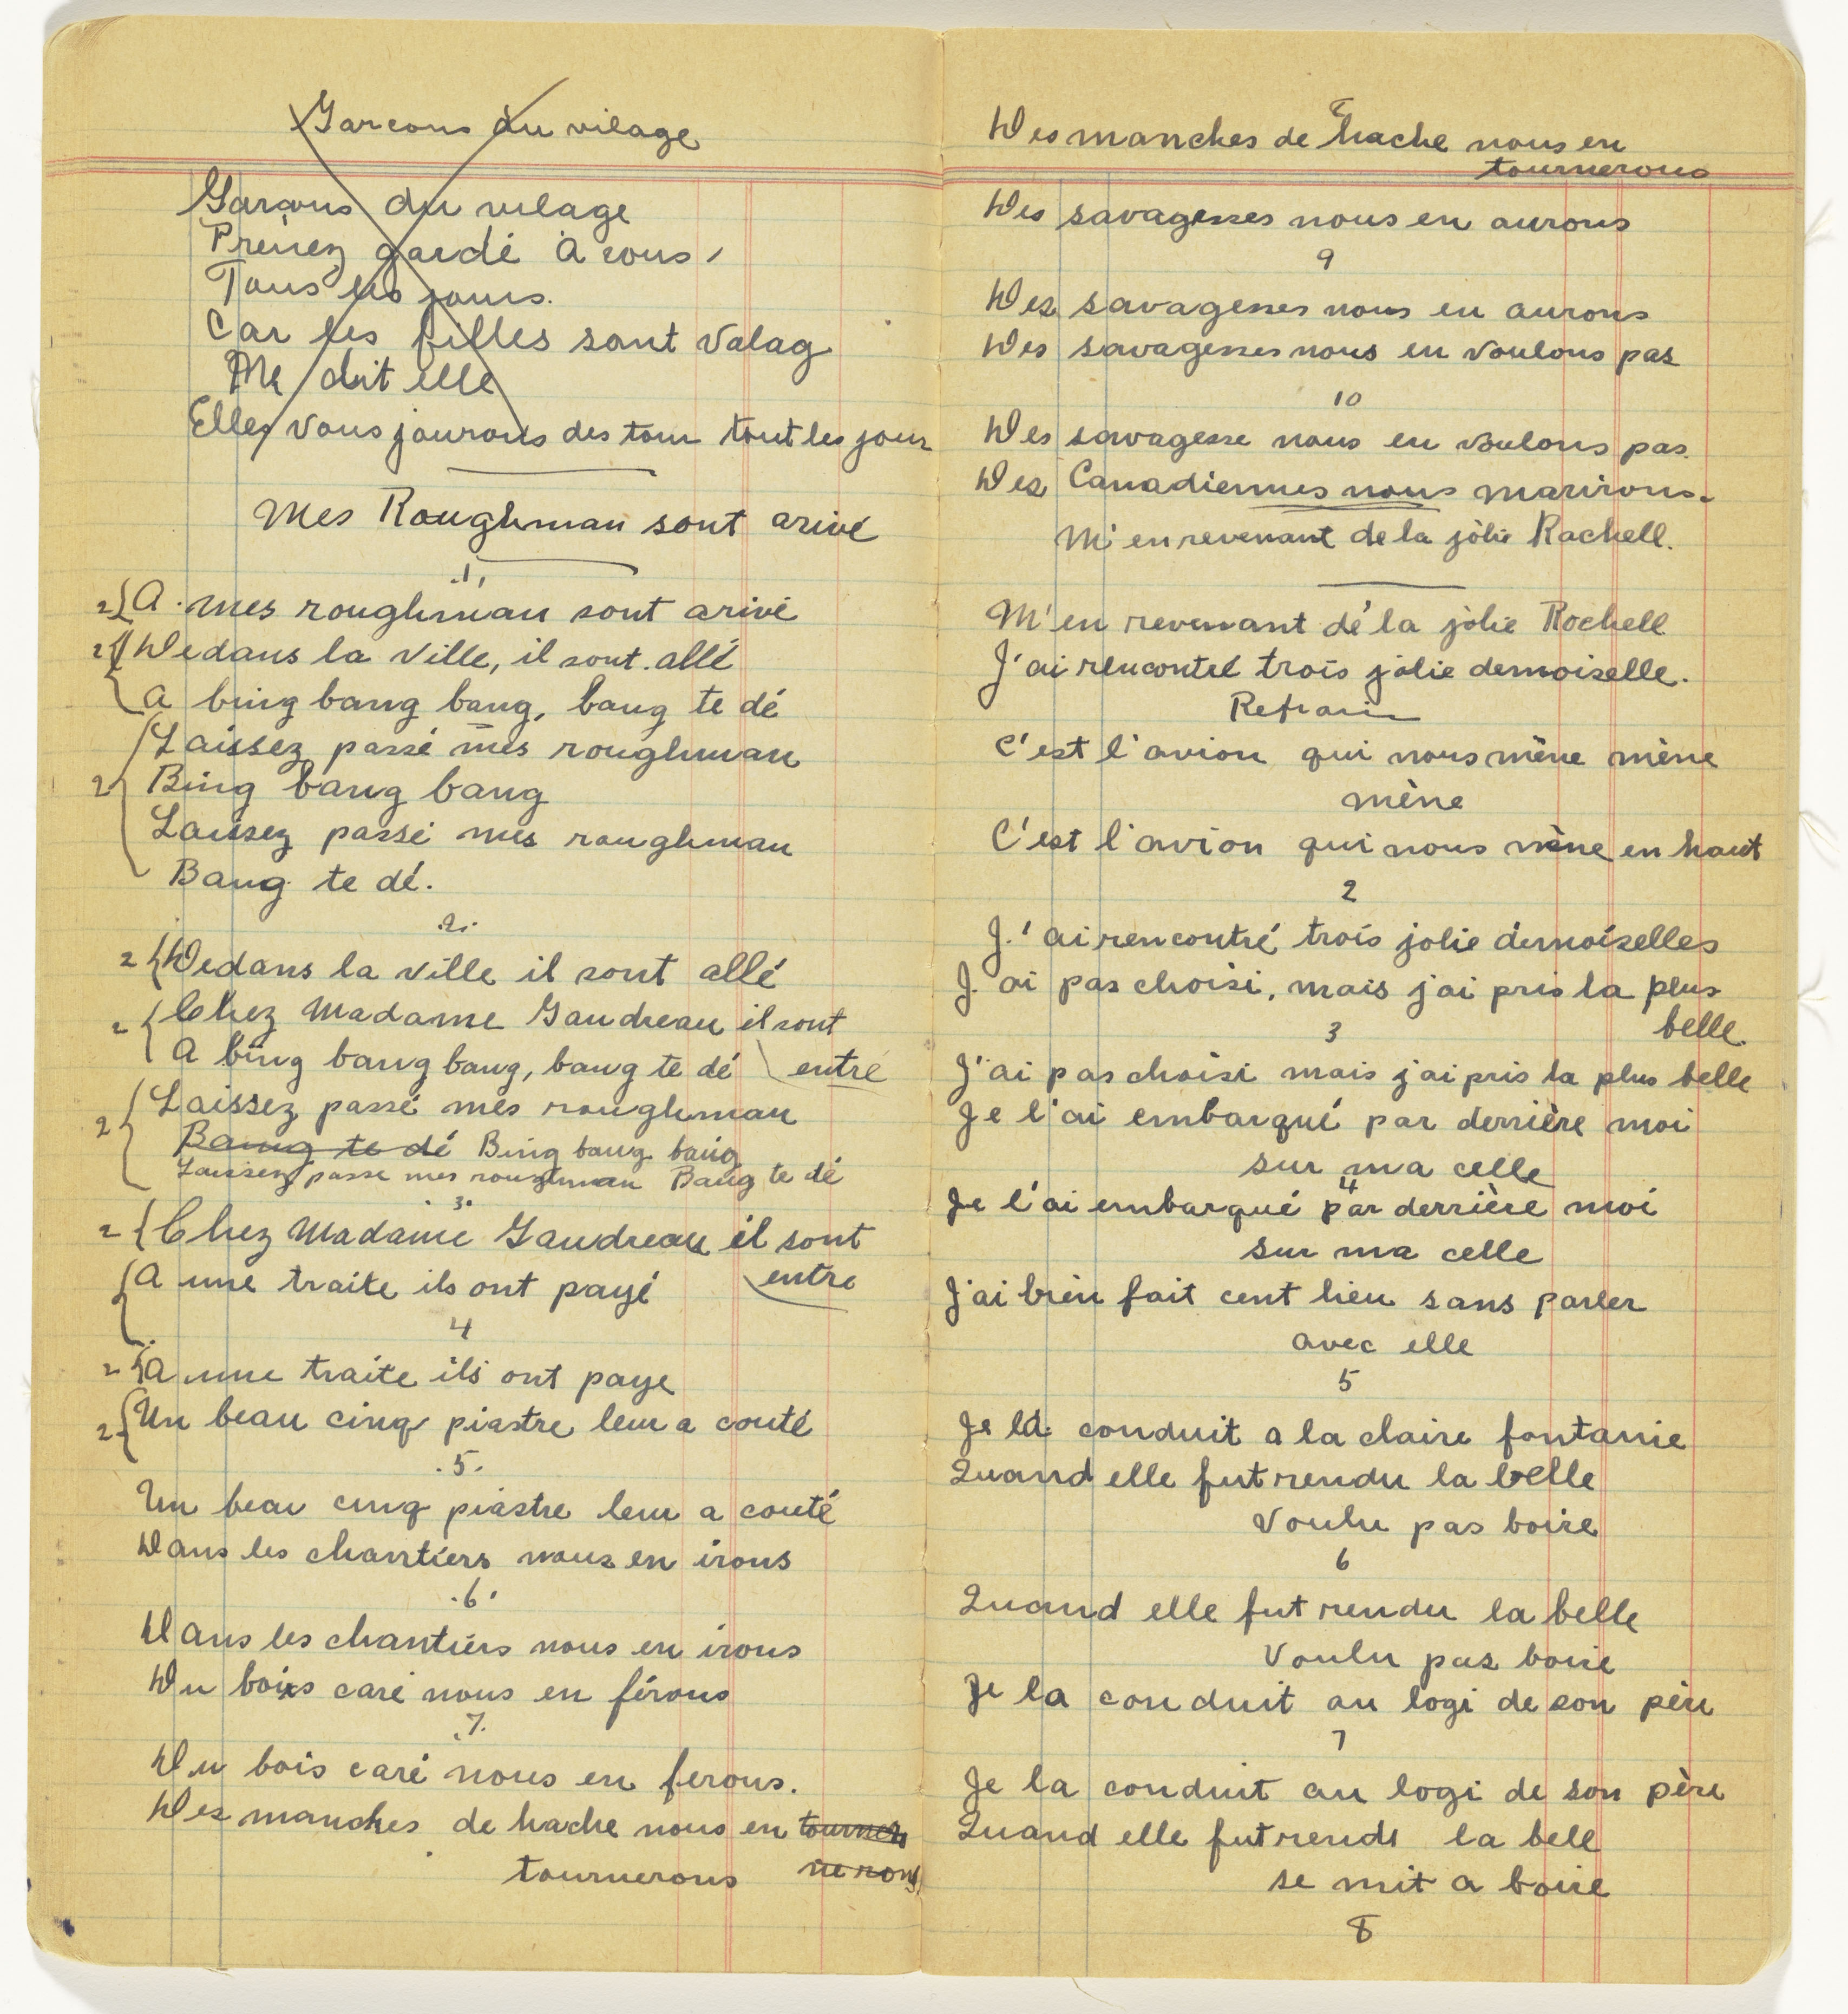 Garcons du vilage
Garcons du vilage
Prenez gardé à vous,
Tous les jours.
Car les filles sont Valag
Me doit elle
Elles vous jourons des tour tout les jour
Mes Roughman sont arivé
.1.
2 { A mes roughman sont arivé
2 { Dedans la ville, il sont allé
A bing bang bang, bang te dé
Laissez passé mes roughman
2 { Bing bang bang
Laissez passé mes roughman
Bang te dé.
.2.
2 { Dedans la ville il sont allé
2 { Chez Madame Gaudreau il sont
entré
A bing bang bang, bang te dé
2 { Laissez passé mes roughman
Bang te dé Bing bang bang
Laissez passe mes roughman Bang te dé
3.
2 { Chez Madame Gaudreau il sont
entre
{ A une traite ils ont payé
4
2 { A une traite ils ont paye
2 { Un beau cinq piastre leur a couté
.5.
Un beau cinq piastre leur a couté
Dans les chantiers nous en irons
.6.
Dans les chantiers nous en irons
Du boixs caré nous en férons
.7.
Du bois caré nous en ferons.
Des manches de hache nous en
tournerons
8
Des manches de hache nous en
tournerons
Des savagesses nous en aurons
9
Des savagesses nous en aurons
Des savagesses nous en voulons pas
10
Des savagesse nous en voulons pas.
Des Canadiennes nous marirons.
M'en revenant de la jolie Rachell.
M'en revenant dé la jolie Rochell
J'ai rencontré trois jolie demoiselle.
Refrain
C'est l'avion qui nous mène mène
mène
C'est l'avion qui nous mène en haut
2
J'ai rencontré trois jolie demoiselles
J'ai pas choisi, mais j'ai pris la plus
belle.
3
J'ai pas choisi mais j'ai pris la plus belle
Je l'ai embarqué par derrière moi
sur ma celle
4
Je l'ai embarqué par derrière moi
sur ma celle
J'ai bien fait cent lieu sans parler
avec elle
5
Je la conduit a la claire fontanie
Quand elle fut rendu la belle
Voulu pas boire
6
Quand elle fut rendu la belle
Voulu pas boire
Je la conduit au logi de son père
7
Je la conduit au logi de son père
Quand elle fut rendu la bell
se mit a boire
8